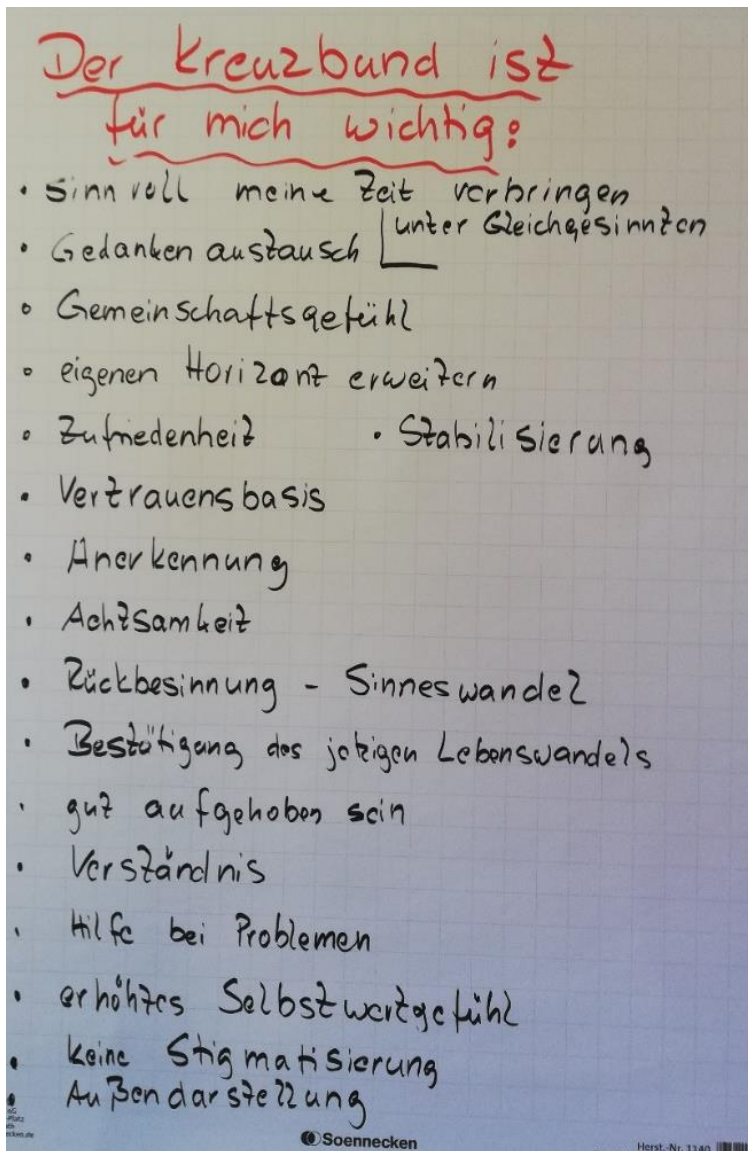 Der Kreuzbund ist
für mich wichtig:
• sinnvoll meine Zeit verbringen
• Gedankenaustausch unter Gleichgesinnten
• Gemeinschaftsgefühl
• eigenen Horizont erweitern
• Zufriedenheit • Stabilisierung
• Vertrauensbasis
• Anerkennung
• Achtsamkeit
• Rückbesinnung - Sinneswandel
• Bestätigung des jetzigen Lebenswandels
• gut aufgehoben sein
• Verständnis
• Hilfe bei Problemen
• erhöhtes Selbstwertgefühl
• keine Stigmatisierung
• Außendarstellung
Soennecken
Herst.-Nr. 1140